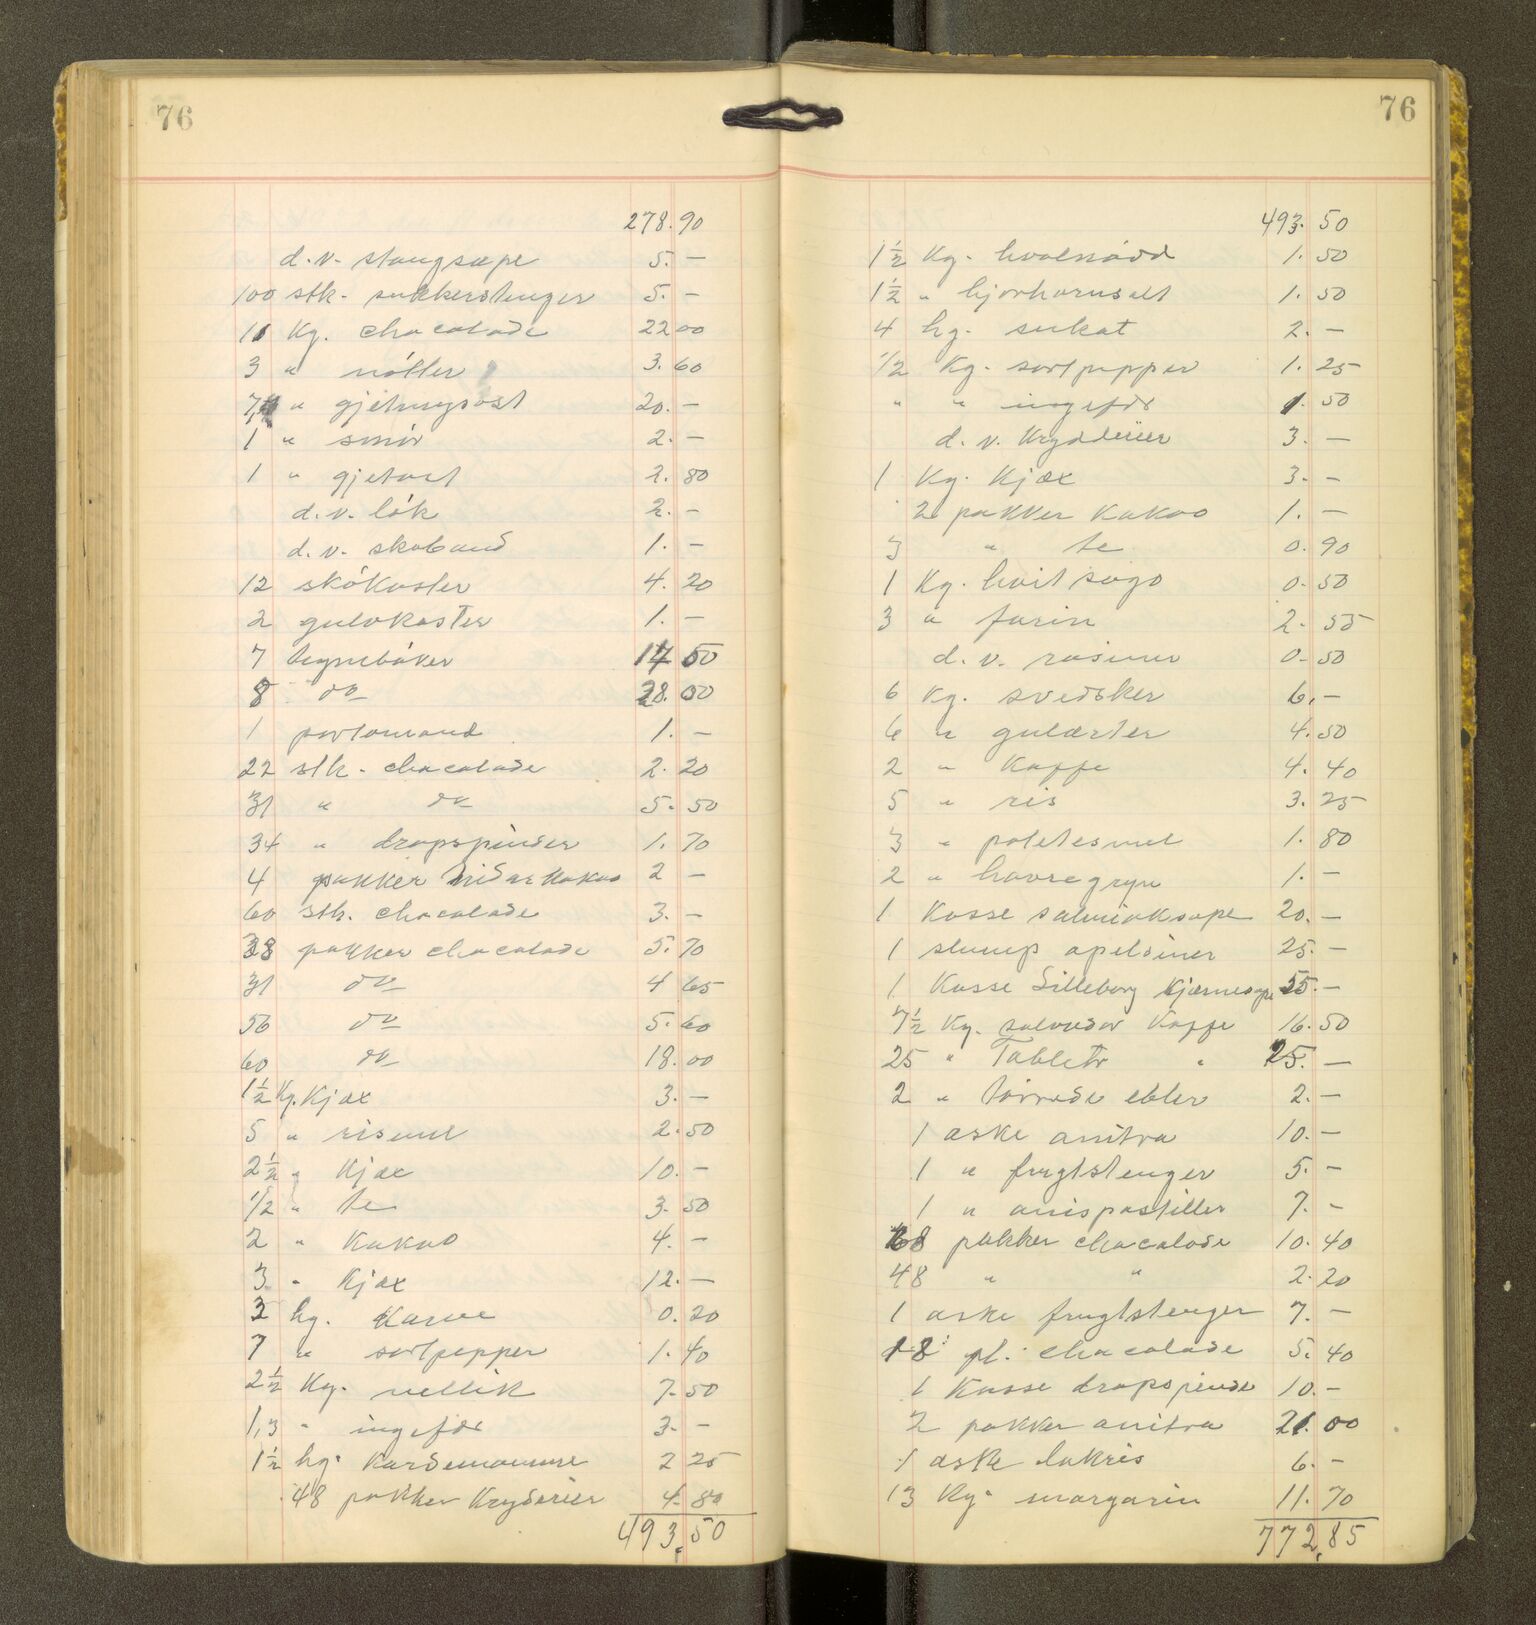 76
278.90
d.v. stangsæpe 5. –
100 stk. sukkerstenger 5. –
11 Kg. chocolade 22 00
3 " nötter 3. 60
" gjetmysost 20. –
1 " smör 2. –
1 " gjetost 2. 80
d.v. lök 2. –
d.v. skoband 1. –
12 skökoster 4. 20
2 gulvkoster 1. –
7 tegnebøker 50
8 do 28. 00
1 portomond 1. –
22 stk. chocolade 2. 20
31 " do 5. 50
34 " dropspinder 1. 70
4 pakker kakao 2 –
60 stk. chocolade 3. –
38 pakker chocolade 5. 70
31 do 4 65
56 do 5. 60
60 do 18. 00
1½ Kg. Kjæx 3. –
5 " rismel 2. 50
2½ " Kjæx 10. –
1/2 " te 3. 50
2 " Kakao 4. –
3 " Kjæx 12. –
3 hg. Karve 0. 20
7 " sortpepper 1. 40
2½ Kg. nellik 7. 50
1,3 " ingefær 3. –
1½ hg. Kardemomme 2 25
48 pakker Kryderier 4. 80
493,50
76
493. 50
1½ Kg. 1. 50
1½ " hjorhornsalt 1. 50
4 hg. sukat 2. –
1/2 Kg. sortpepper 1. 25
" " ingefær 1. 50
d.v. Krydderier 3. –
1 Kg. Kjæx 3. –
2 pakker Kakao 1. –
3 " te 0. 90
1 Kg. hvit sago 0. 50
3 " farin 2. 55
d.v. rosiner 0. 50
6 Kg. svedsker 6. –
6 " gulærter 4. 50
2 " Kaffe 4. 40
5 " ris 3. 25
3 " potetesmel 1. 80
2 " havregryn 1. –
1 Kasse salmiaksæpe 20. –
1 slump apelsiner 25. –
1 Kasse Lilleborg Kjærnesæpe –
7½ Kg. salvador Kaffe 16. 50
25 " Tabletr " 25. –
2 " törrede ebler 2. –
1 æske anitra 10. –
1 " frugtstenger 5. –
1 " anispastiller 7. –
68 pakker chocolade 10. 40
48 " " 2. 20
1 æske frugtstenger 7. –
18 pl. chocolade 5. 40
1 Kasse dropspinde 10. –
2 pakker anitra 21. 00
1 æske lakris 6. –
13 Kg. margarin 11. 70
772,85